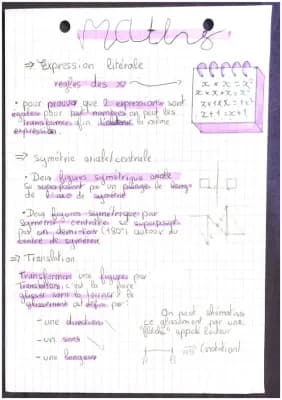 Maths
⇒ Expression litérale
regles des x
x × x = x²
x × x × x = x³
x + 1 x x = 1x²
x + 1 = x + 1
• pour prouver que 2 expressions sont
égales pour tout nombres on peut les
transformer afin d' le même
expression.
⇒ symétrie axiale/centrale
• Deux figures symétrique axiale
se superposent par un pliage le long
de l'axe de symétrie
• Deux figures symétrique par
symétrie centrale se superposent
par un demi-tour (180°) autour du
centre de symétrie
⇒ Translation
Transformer une figures par
translation c'est la faire
glisser sans la tourner. Ce
glissement est défini par :
- une direction
- un sens
- une longueur
On peut shématiser
ce glissement par une
"flèche" appelé vecteur
A B AB (notation)